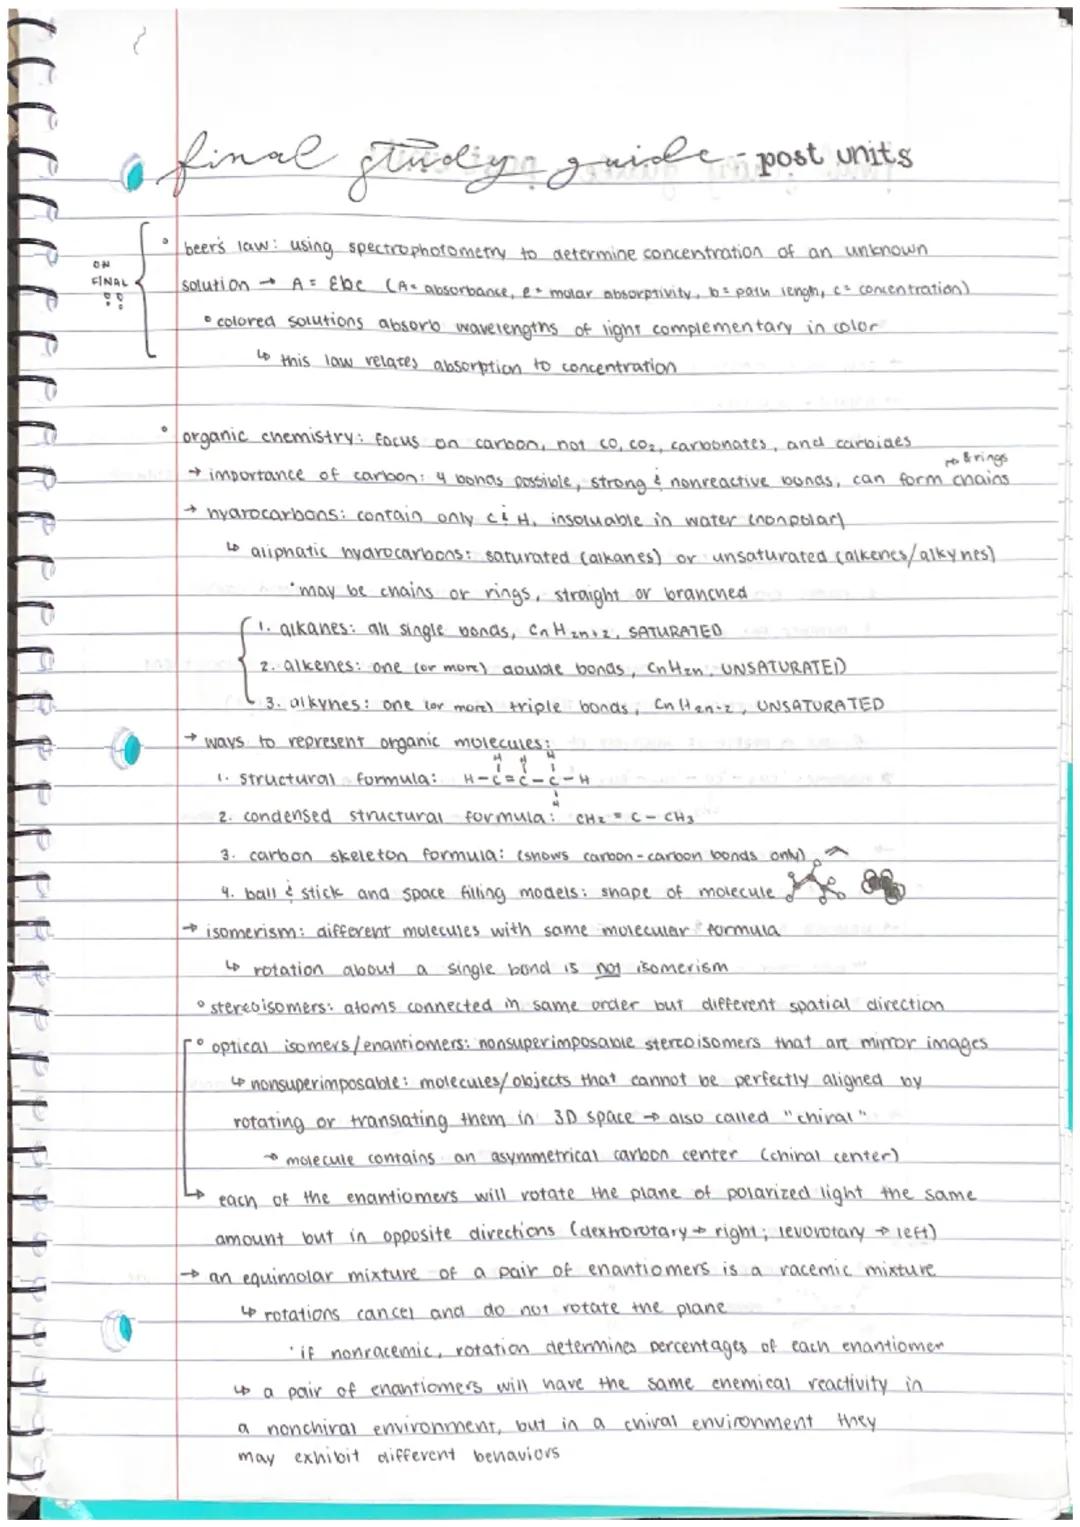 final study guide - post units
ON FINAL !!
• beer's law: using spectrophotometry to determine concentration of an unknown
solution → A = Ɛbc (A = absorbance, e = molar absorptivity, b = path length, c = concentration)
• colored solutions absorb wavelengths of light complementary in color
↳ this law relates absorption to concentration
• organic chemistry: focus on carbon, not CO, CO₂, carbonates, and carbides
→ & rings
→ importance of carbon: 4 bonds possible, strong & nonreactive bonds, can form chains
→ hydrocarbons: contain only C & H, insoluable in water (nonpolar)
↳ aliphatic hydrocarbons: saturated (alkanes) or unsaturated (alkenes/alkynes)
• may be chains or rings, straight or branched
1. alkanes: all single bonds, CnH2n+2, SATURATED
2. alkenes: one (or more) double bonds, CnH2n, UNSATURATED
3. alkynes: one (or more) triple bonds, CnH2n-2, UNSATURATED
→ ways to represent organic molecules:
H H H
1. structural formula: H-C=C-C-H
H
2. condensed structural formula: CH₂=C-CH₃
3. carbon skeleton formula: (shows carbon-carbon bonds only)
4. ball & stick and space filling models: shape of molecule
→ isomerism: different molecules with same molecular formula
↳ rotation about a single bond is not isomerism
• stereoisomers: atoms connected in same order but different spatial direction
• optical isomers/enantiomers: nonsuperimposable stereoisomers that are mirror images
↳ nonsuperimposable: molecules/objects that cannot be perfectly aligned by
rotating or translating them in 3D space → also called "chiral"
→ molecule contains an asymmetrical carbon center (chiral center)
↳ each of the enantiomers will rotate the plane of polarized light the same
amount but in opposite directions (dextrorotary → right; levorotary → left)
→ an equimolar mixture of a pair of enantiomers is a racemic mixture
↳ rotations cancel and do not rotate the plane
• if nonracemic, rotation determines percentages of each enantiomer
↳ a pair of enantiomers will have the same chemical reactivity in
a nonchiral environment, but in a chiral environment they
may exhibit different behaviors